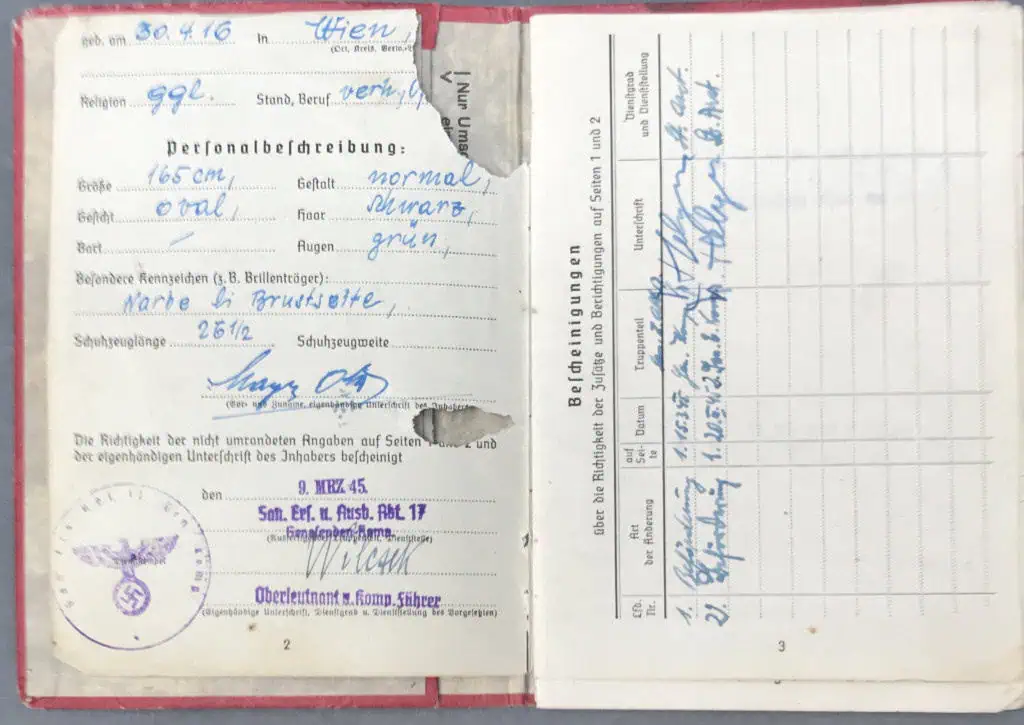 geb. am 30.4.16 in Wien,
(Ort, Kreis, Verw.-
Religion ggl. Stand, Beruf verh.,
(Nur Umsch
V ei
Personalbeschreibung:
Größe 165 cm, Gestalt normal,
Gesicht oval, Haar schwarz,
Bart — Augen grün,
Besondere Kennzeichen (z.B. Brillenträger):
Narbe li Brustseite,
Schuhzeuglänge 26 1/2 Schuhzeugweite
(Vor- und Zuname, eigenhändige Unterschrift des Inhabers)
Die Richtigkeit der nicht umrandeten Angaben auf Seiten 1 und 2 und
der eigenhändigen Unterschrift des Inhabers bescheinigt
den 9. MRZ 45.
San. Ers. u. Ausb. Abt. 17
Genesenden-Komp.
Dienststempel
Oberleutnant u. Komp. Führer
(Eigenhändige Unterschrift, Dienstgrad u. Dienststellung des Vorgesetzten)
2
Bescheinigungen
über die Richtigkeit der Zusätze und Berichtigungen auf Seiten 1 und 2
Lfd. Nr. Art der Änderung auf Seite Datum Truppenteil Unterschrift Dienstgrad und Dienststellung
1. 1. 15.3.45
2) Beförderung 1. 20.5.45
3